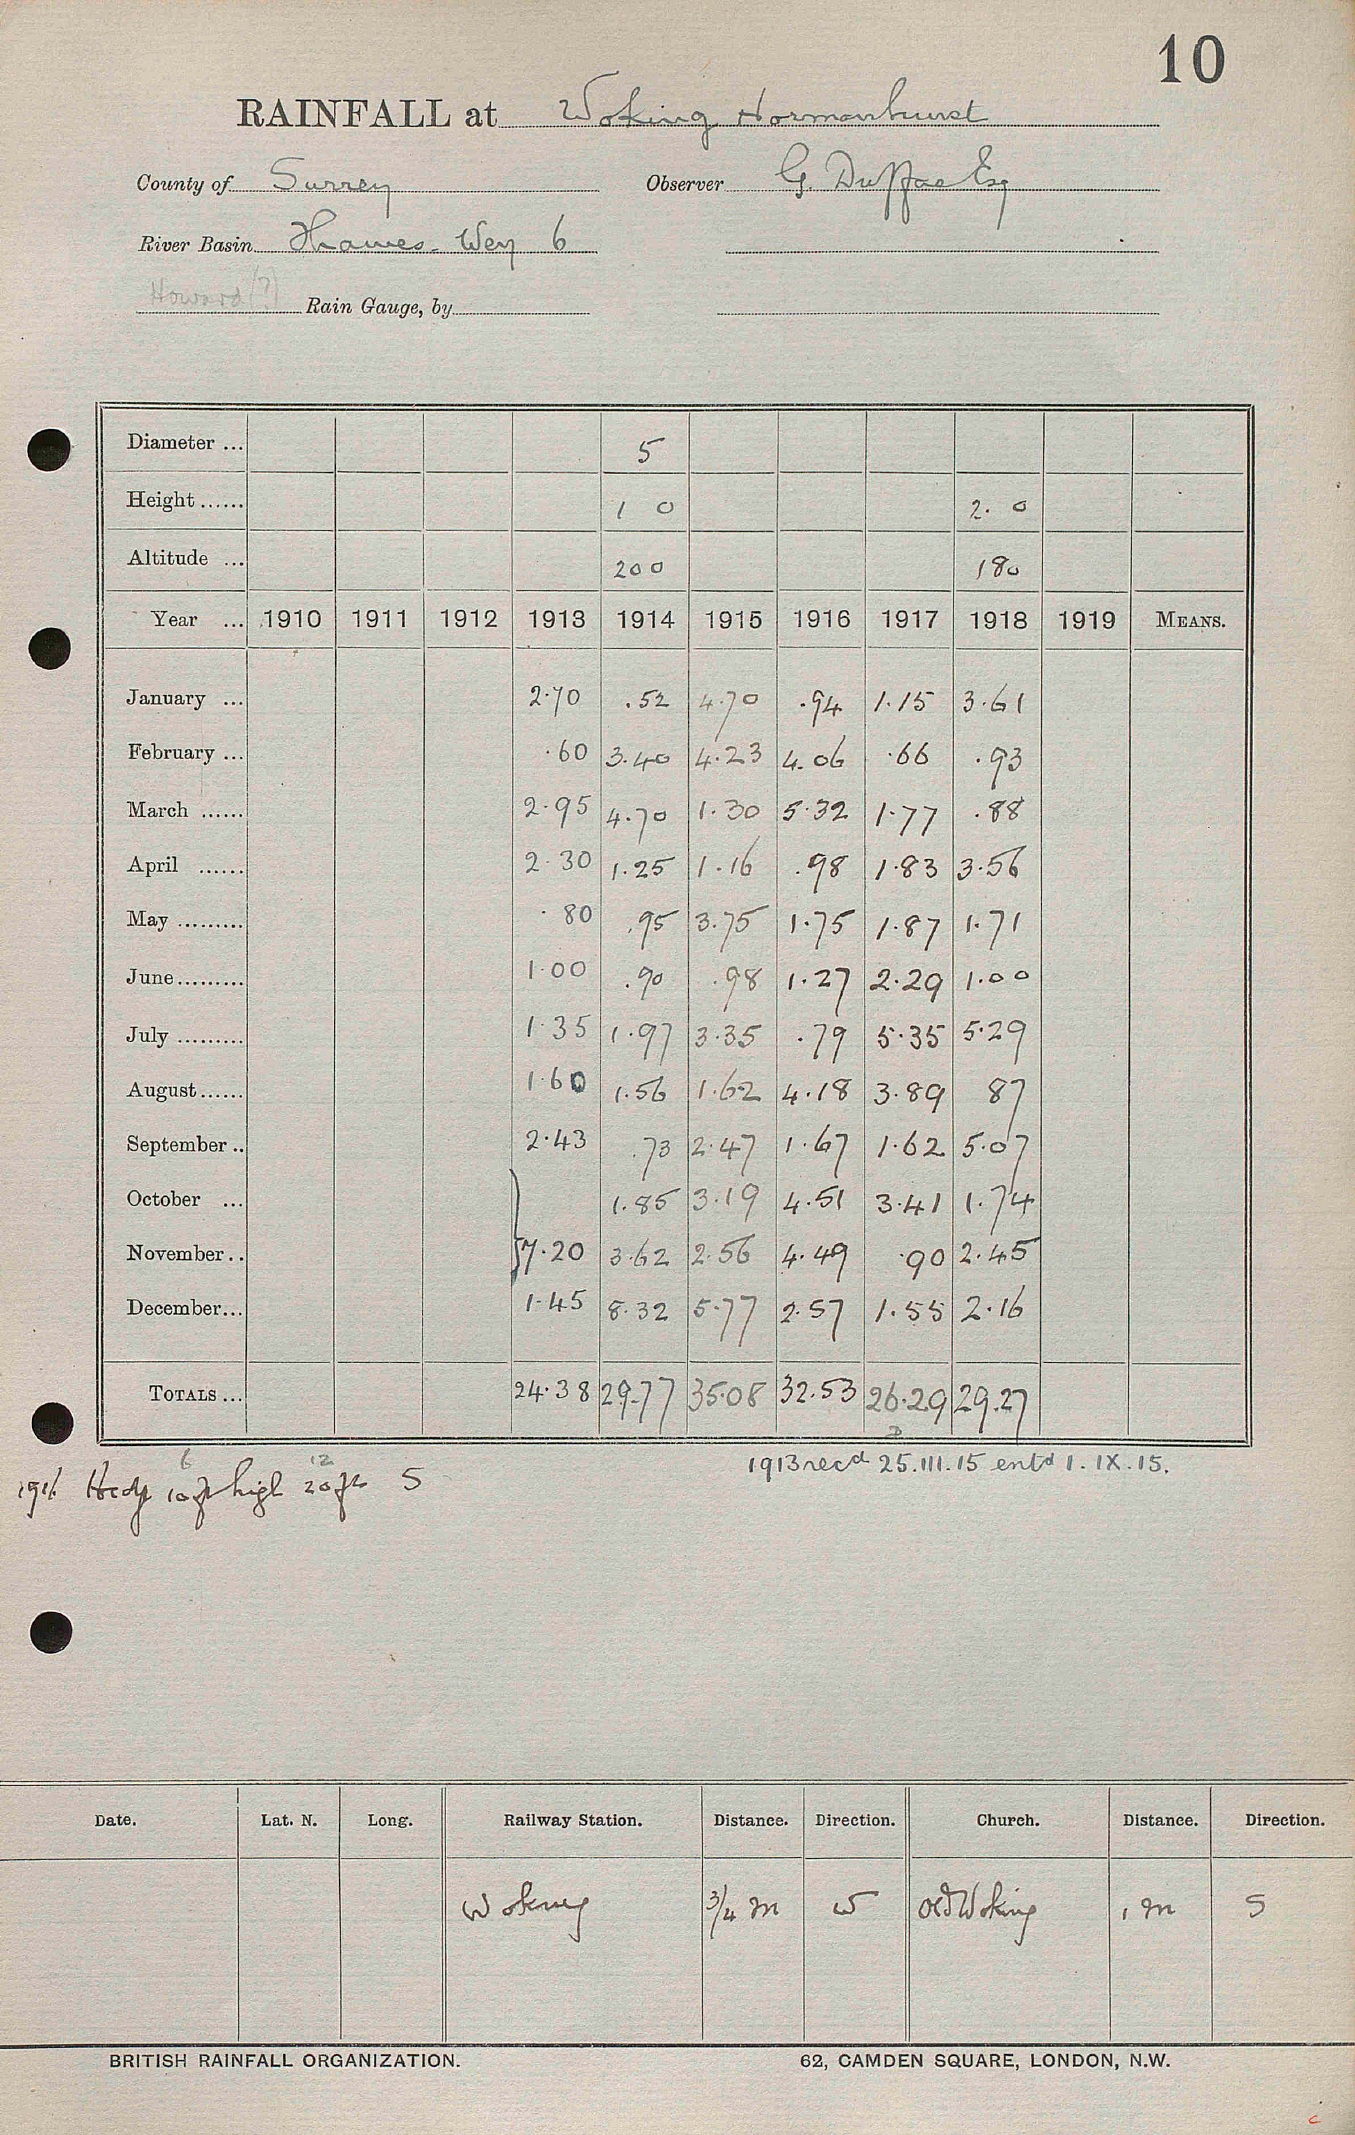 10
RAINFALL at Woking Hormanhurst
County of Surrey Observer G. Duffae Esq
River Basin Thames - Wey 6
Howard (?) Rain Gauge, by
Diameter ... 5
Height ...... 1 0 2. 0
Altitude ... 200 180
Year ... 1910 1911 1912 1913 1914 1915 1916 1917 1918 1919 MEANS.
January ... 2.70 .52 4.70 .94 1.15 3.61
February ... .60 3.40 4.23 4.06 .66 .93
March ...... 2.95 4.70 1.30 5.32 1.77 .88
April ...... 2.30 1.25 1.16 .98 1.83 3.56
May ......... .80 .95 3.75 1.75 1.87 1.71
June ......... 1.00 .90 .98 1.27 2.29 1.00
July ......... 1.35 1.97 3.35 .79 5.35 5.29
August ...... 1.60 1.56 1.62 4.18 3.89 87
September .. 2.43 .73 2.47 1.67 1.62 5.07
October ... 1.85 3.19 4.51 3.41 1.74
November .. } 7.20 3.62 2.56 4.49 .90 2.45
December ... 1.45 8.32 5.77 2.57 1.55 2.16
TOTALS ... 24.38 29.77 35.08 32.53 26.29 29.27
1913 recd 25.III.15 entd 1.IX.15.
6 12
1916 Hedge 10ft high 20ft S
Date. Lat. N. Long. Railway Station. Distance. Direction. Church. Distance. Direction.
Woking 3/4 m W Old Woking 1 m S
BRITISH RAINFALL ORGANIZATION. 62, CAMDEN SQUARE, LONDON, N.W.
c